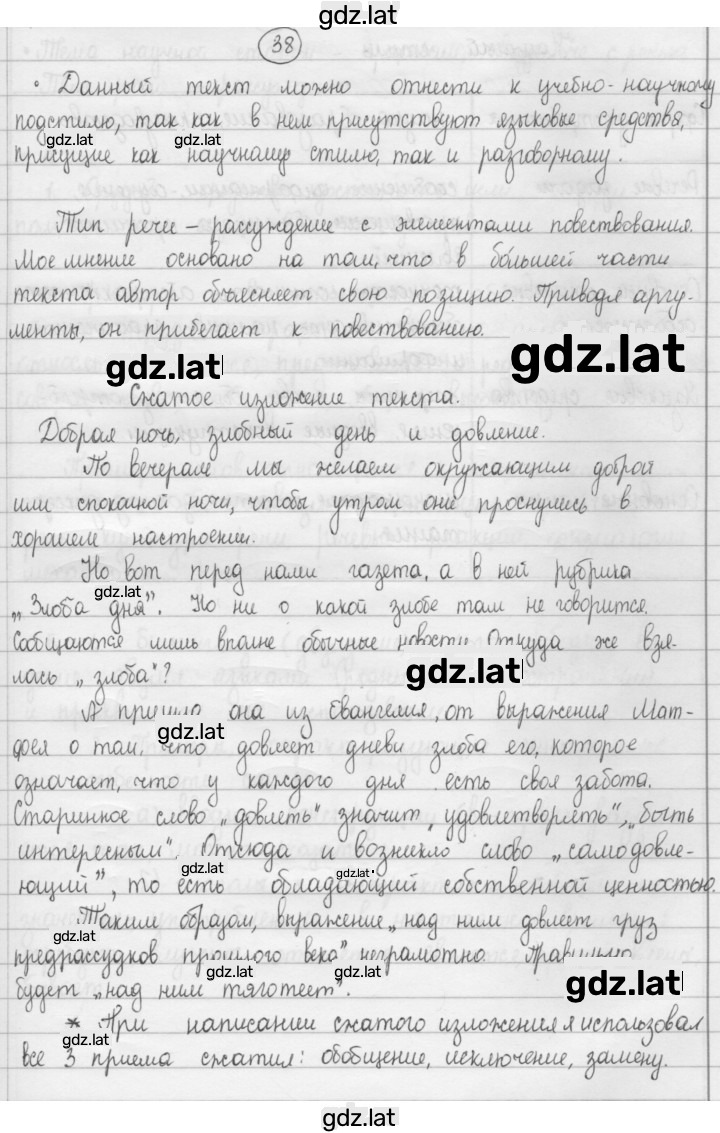 gdz.lat
38
• Данный текст можно отнести к учебно-научному
подстилю, так как в нем присутствуют языковые средства,
gdz.lat gdz.lat
присущие как научному стилю, так и разговорному.
Тип речи – рассуждение с элементами повествования.
Мое мнение основано на том, что в бóльшей части
текста автор объясняет свою позицию. Приводя аргу-
менты, он прибегает к повествованию.
gdz.lat gdz.lat
Сжатое изложение текста.
Добрая ночь, злобный день и довление.
По вечерам мы желаем окружающим доброй
или спокойной ночи, чтобы утром они проснулись в
хорошем настроении.
Но вот перед нами газета, а в ней рубрика
gdz.lat
„Злоба дня". Но ни о какой злобе там не говорится.
Сообщаются лишь вполне обычные новости. Откуда же взя-
лась „злоба"?
gdz.lat
А пришла она из Евангелия, от выражения Мат-
gdz.lat
фея о том, что довлеет дневи злоба его, которое
означает, что у каждого дня есть своя забота.
Старинное слово „довлеть" значит „удовлетворять", „быть
интересным". Отсюда и возникло слово „самодовле-
gdz.lat gdz.lat
ющий", то есть обладающий собственной ценностью.
Таким образом, выражение „над ним довлеет груз
gdz.lat
предрассудков прошлого века" неграмотно. Правильно
gdz.lat gdz.lat gdz.lat
будет „над ним тяготеет".
* При написании сжатого изложения я использовал
все 3 приема сжатия: обобщение, исключение, замену.
gdz.lat